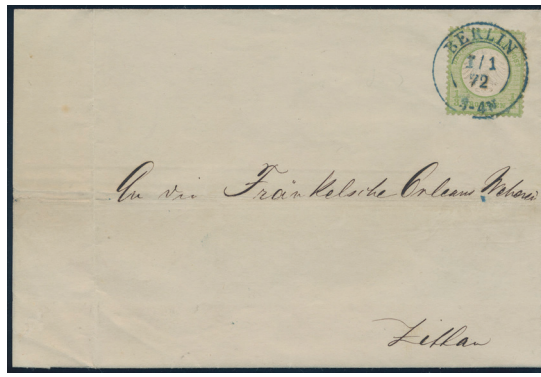 BERLIN
1/1
72
3-4N
An die Fränkelsche Orleans Weberei
Zittau